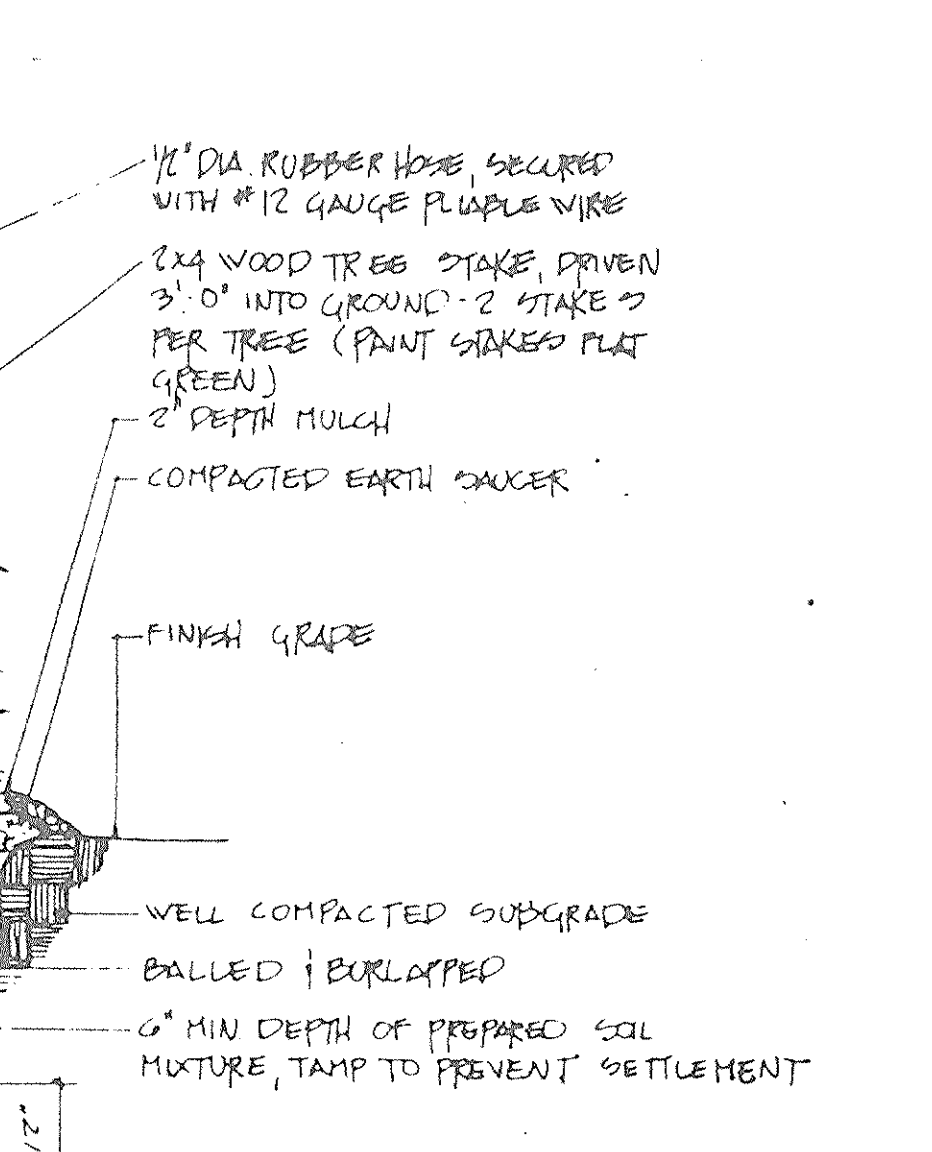 1/2" DIA. RUBBER HOSE, SECURED
WITH #12 GAUGE PLIABLE WIRE
2x4 WOOD TREE STAKE, DRIVEN
3'-0" INTO GROUND-2 STAKES
PER TREE (PAINT STAKES FLAT
GREEN)
2" DEPTH MULCH
COMPACTED EARTH SAUCER
FINISH GRADE
WELL COMPACTED SUBGRADE
BALLED & BURLAPPED
6" MIN. DEPTH OF PREPARED SOIL
MIXTURE, TAMP TO PREVENT SETTLEMENT